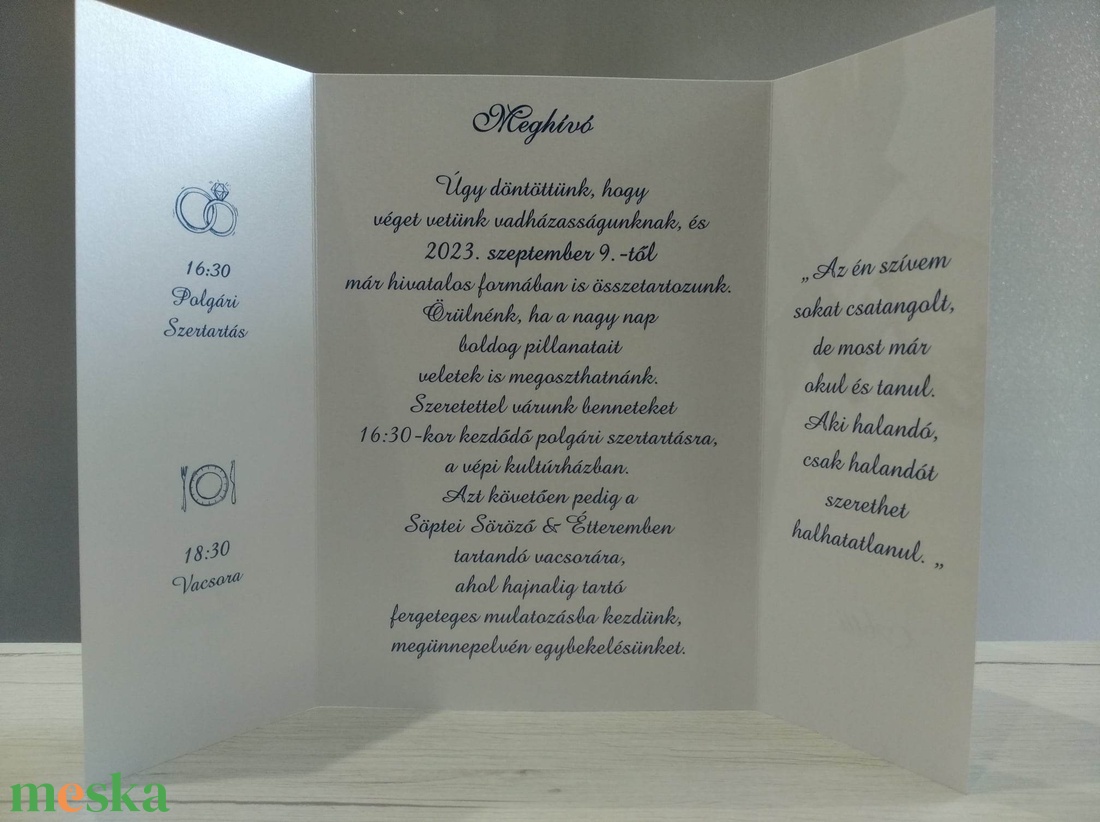 16:30
Polgári
Szertartás
18:30
Vacsora
Meghívó
Úgy döntöttünk, hogy
véget vetünk vadházasságunknak, és
2023. szeptember 9.-től
már hivatalos formában is összetartozunk.
Örülnénk, ha a nagy nap
boldog pillanatait
veletek is megoszthatnánk.
Szeretettel várunk benneteket
16:30-kor kezdődő polgári szertartásra,
a vépi kultúrházban.
Azt követően pedig a
Söptei Söröző & Étteremben
tartandó vacsorára,
ahol hajnalig tartó
fergeteges mulatozásba kezdünk,
megünnepelvén egybekelésünket.
„Az én szívem
sokat csatangolt,
de most már
okul és tanul.
Aki halandó,
csak halandót
szerethet
halhatatlanul. „
meska